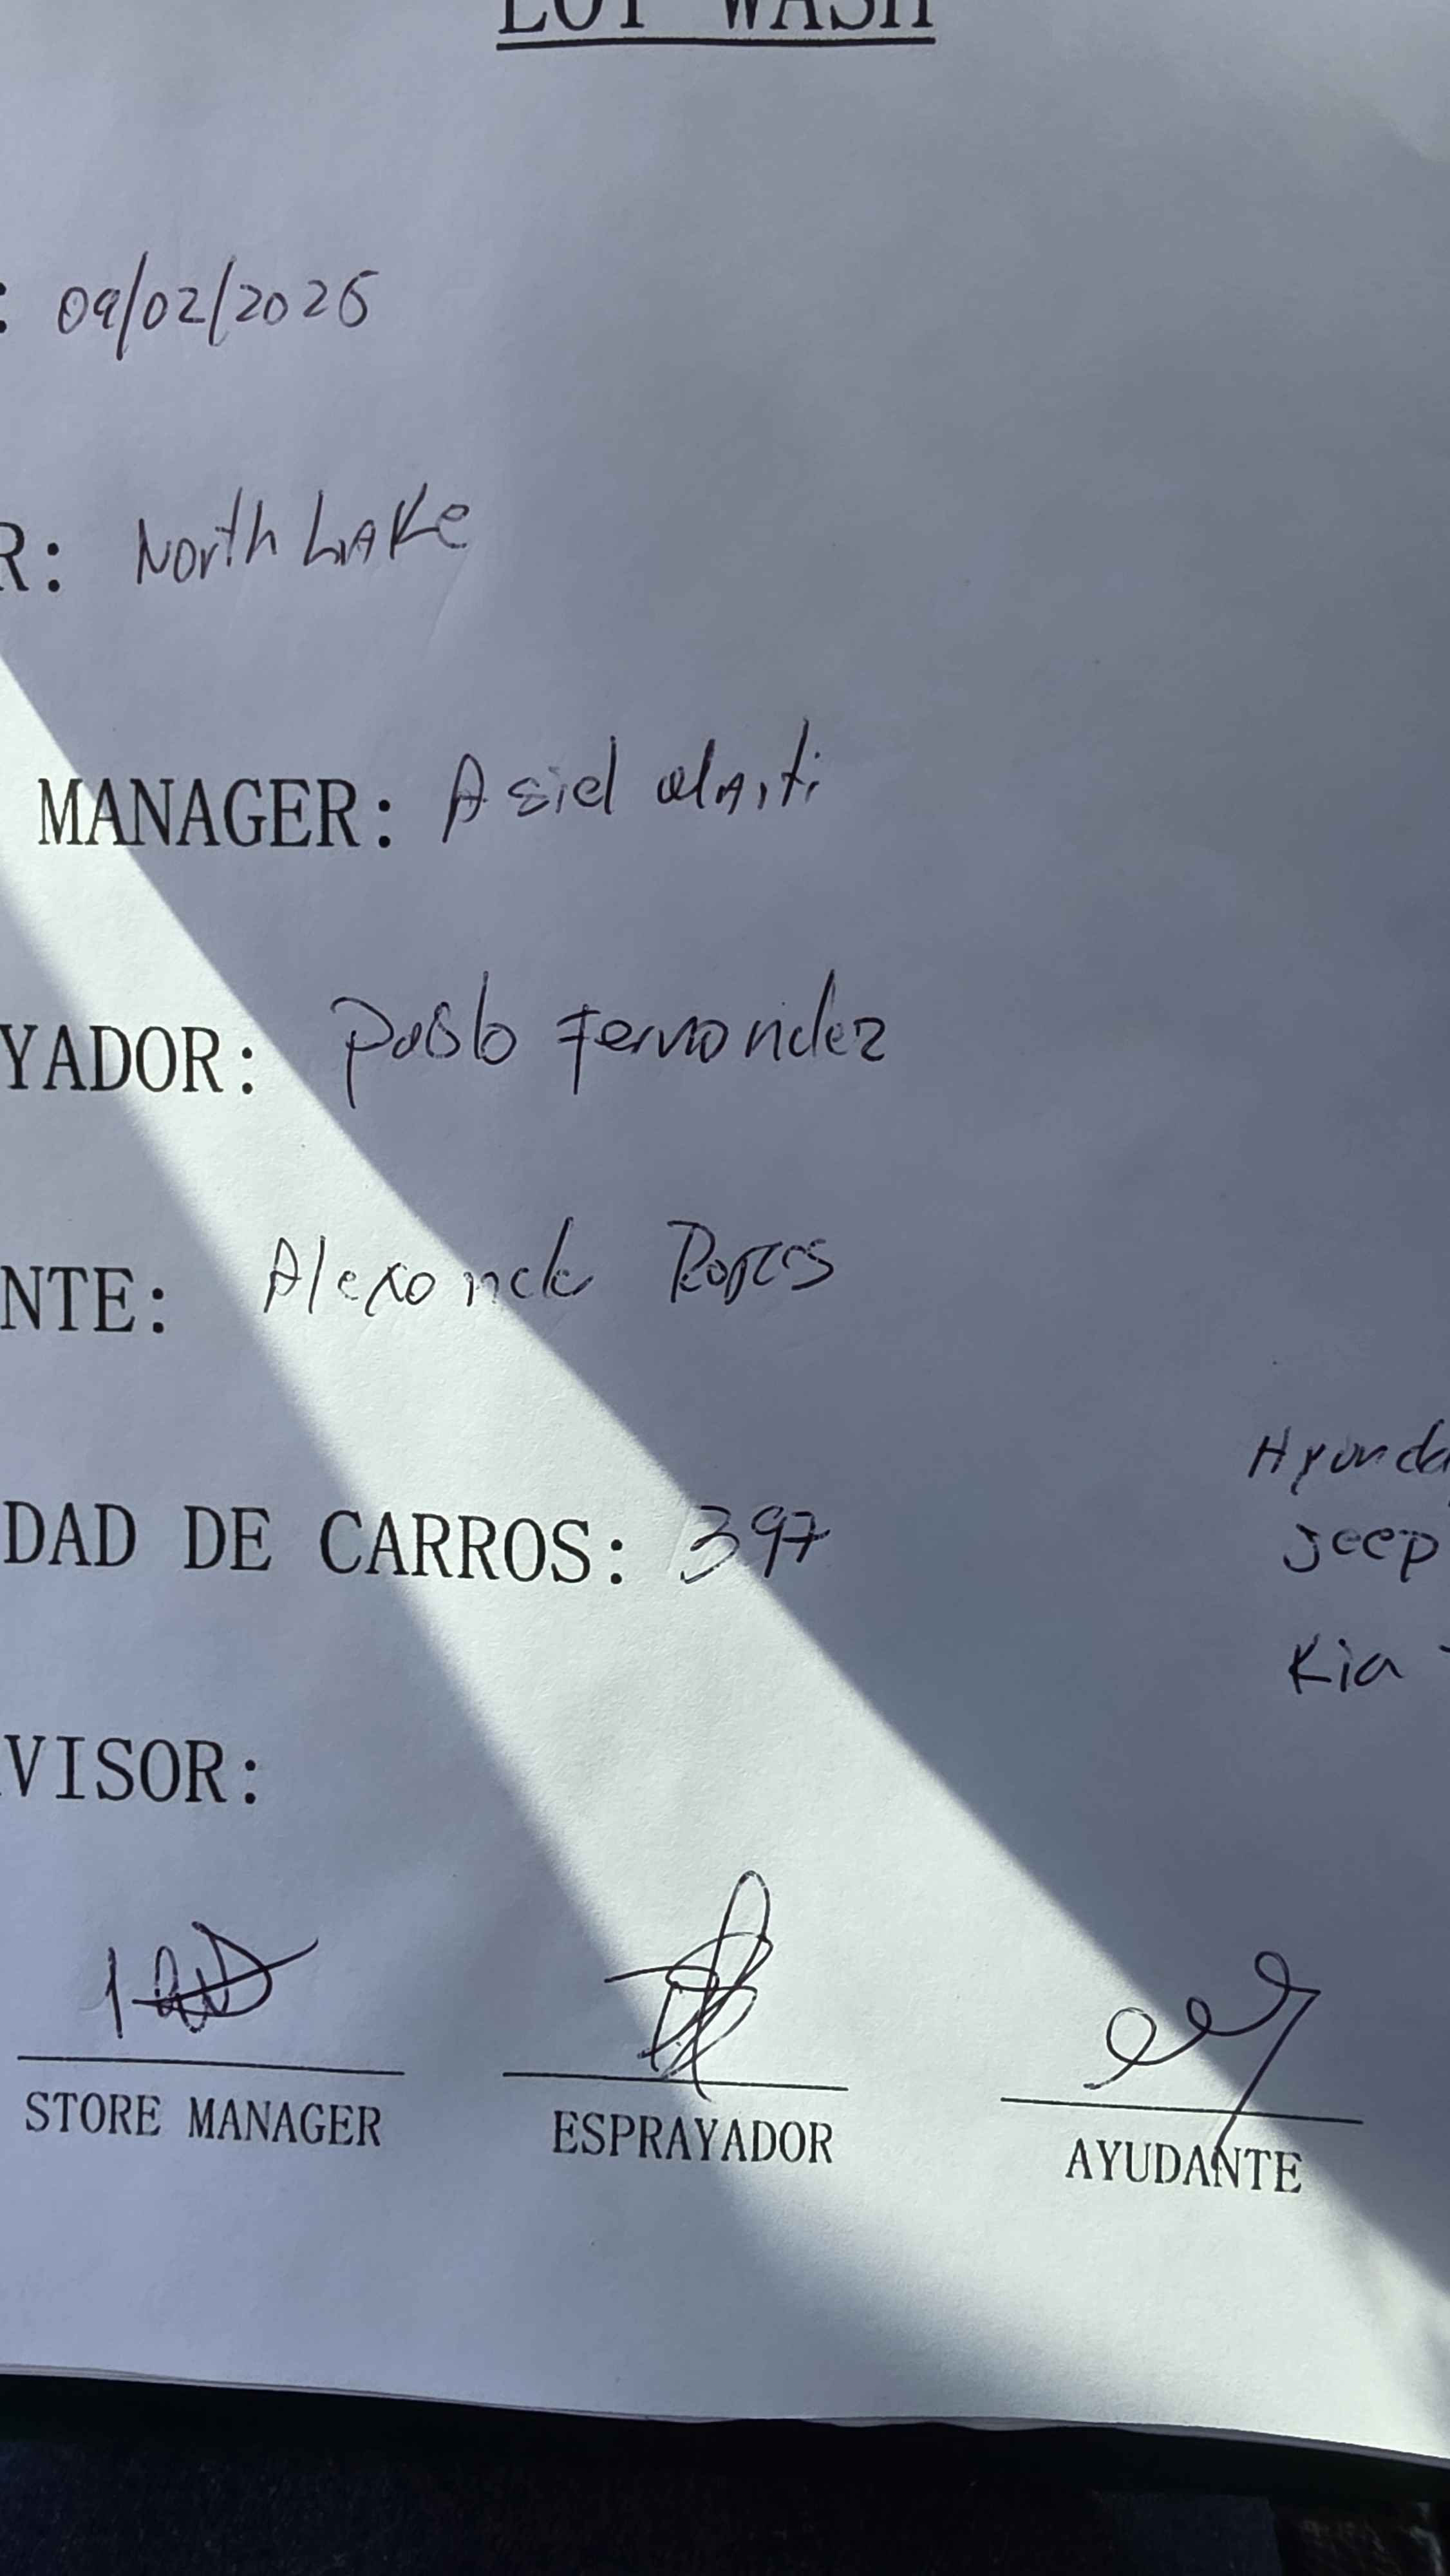 LOT WASH
: 09/02/2026
R: North Lake
MANAGER: Asiel Marti
YADOR: Pablo Fernandez
NTE: Rojas
Hyunda
DAD DE CARROS: 397
Jeep
Kia -
VISOR:
STORE MANAGER ESPRAYADOR AYUDANTE